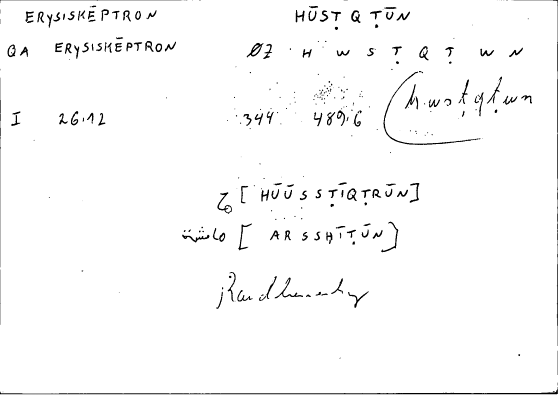 ERYSISKĒPTRON HŪSṬQṬŪN
QA ERYSISKĒPTRON ØZ H W S Ṭ Q Ṭ W N
I 26.12 344 489.6 h.wsṭqṭwn
[HŪŪSSṬĪQṬRŪN]
[ARSSHĪṬŪN]